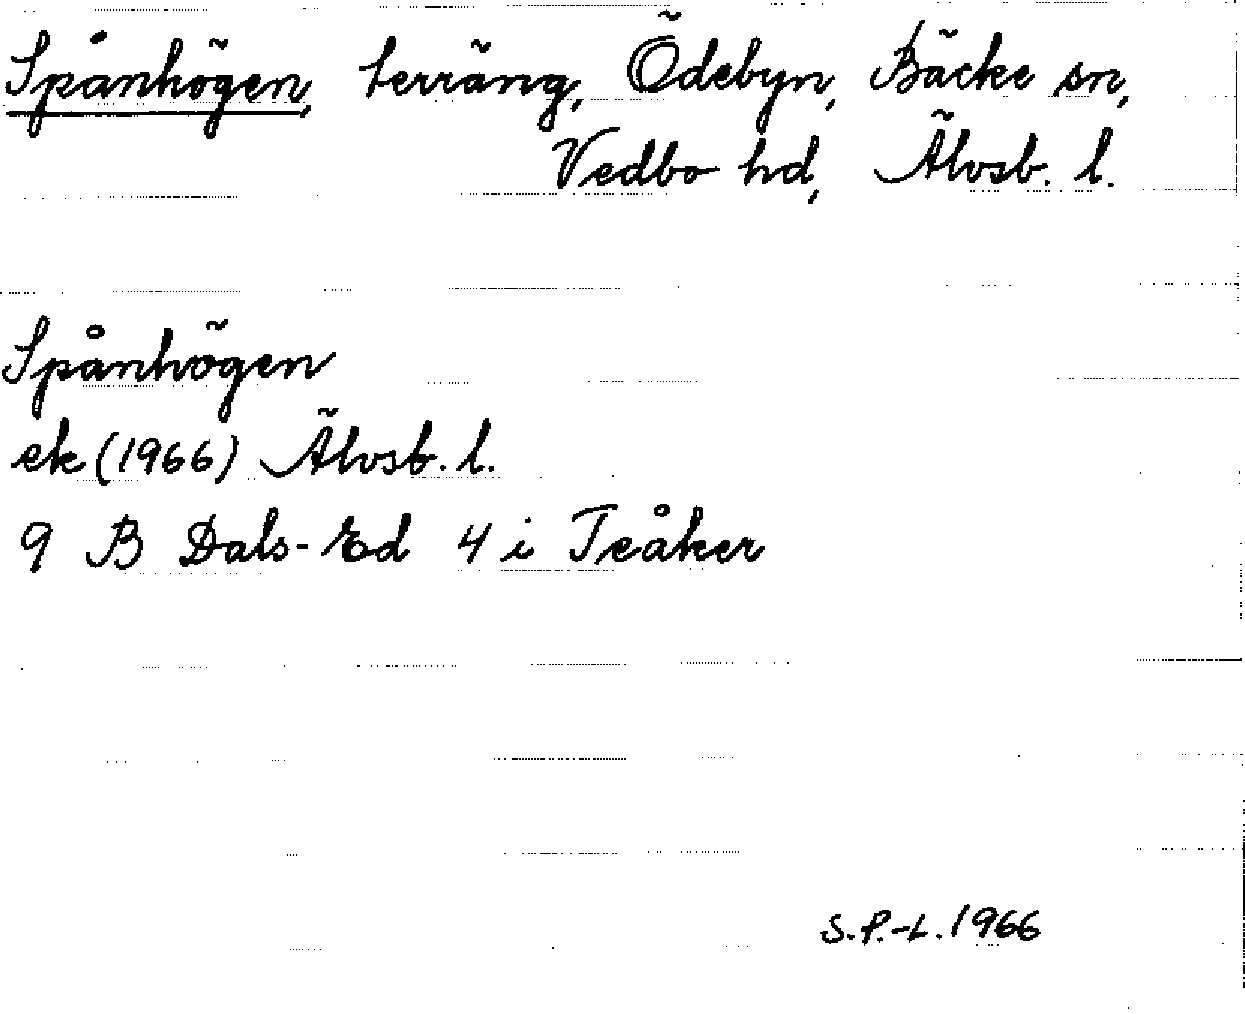 Spånhögen, terräng, Ödebyn, Bäcke sn,
Vedbo hd, Älvsb. l.
Spånhögen
ek (1966) Älvsb. l.
9 B Dals-Ed 4 i Teåker
S.P.-L. 1966